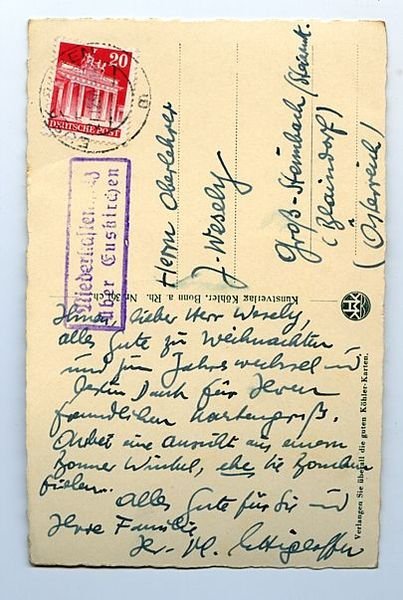 20
DEUTSCHE POST
Niederkasten
über Euskirchen
Herrn Oberlehrer
J. Wesely
Groß-Steinbach/Steierm.
(Blaindorf)
(Österreich)
Kunstverlag Köhler, Bonn a. Rh. Nr.
Verlangen Sie überall die guten Köhler-Karten.
Ihnen, lieber Herr Wesely,
alles Gute zu Weihnachten
und zum Jahreswechsel und
besten Dank für Ihren
freundlichen Kartengruß.
Anbei eine Ansicht aus einem
Bonner Winkel, ehe die Bomben
fielen.
Alles Gute für Sie und
Ihre Familie
Ihr